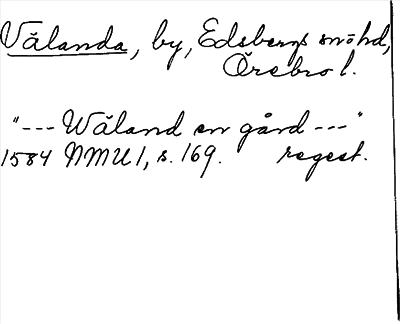 Vålanda, by, Edsbergs snöhd,
Örebro l.
"--- Wåland en gård ---"
1584 NMU 1, s. 169. regest.